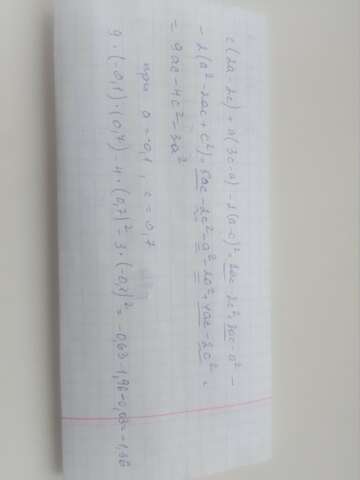 c(2a-2c)+a(3c-a)-2(a-c)²=2ac-2c²+3ac-a²-
-2(a²-2ac+c²)=5ac-2c²-a²-2a²+4ac-2c²=
=9ac-4c²-3a²
при a=-0,1, c=0,7
9·(-0,1)·(0,7)-4·(0,7)²-3·(-0,1)²=-0,63-1,96-0,03=